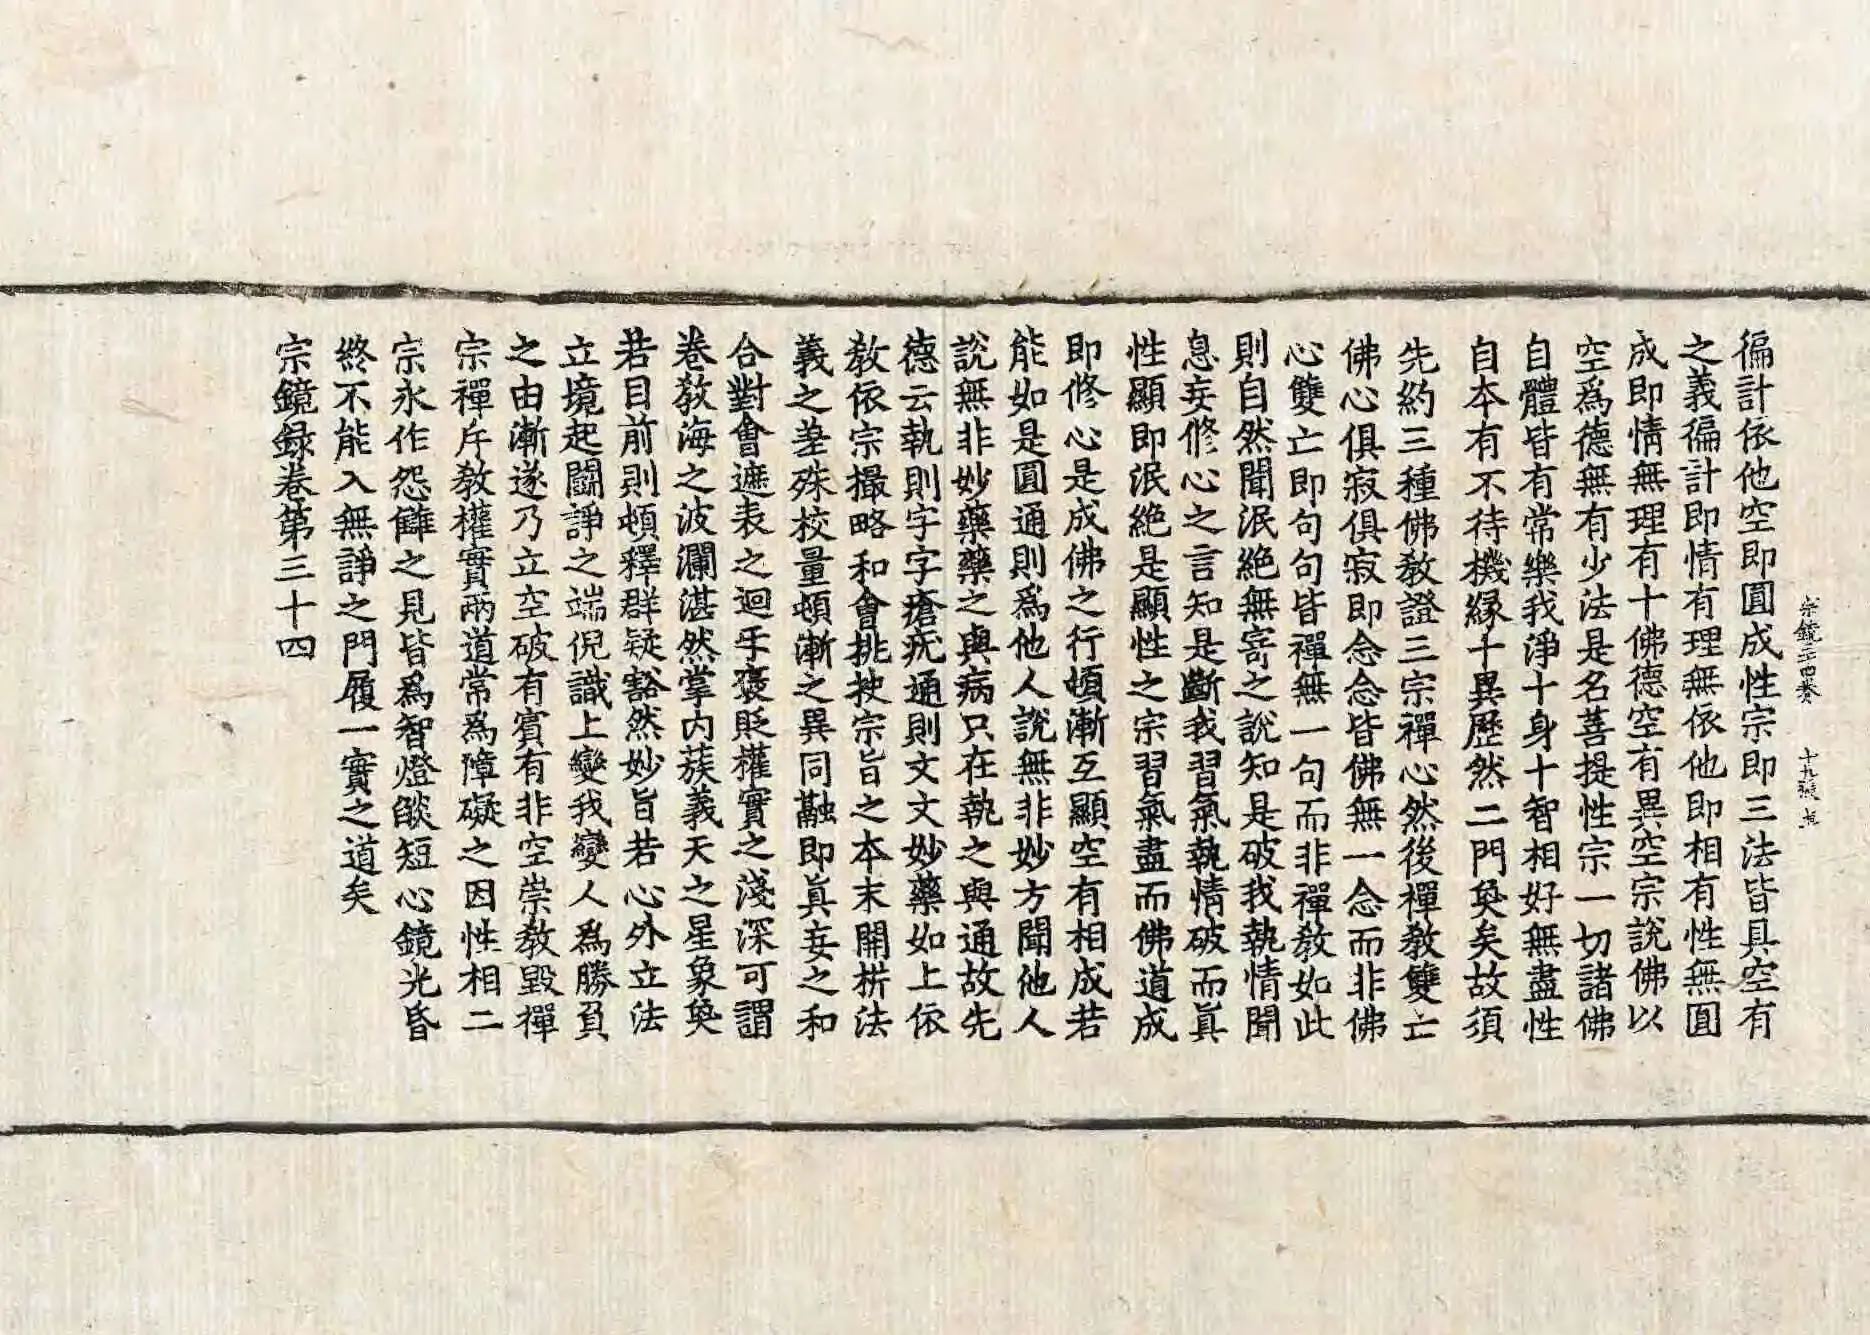 宗鏡三十四卷 十九
徧計依他空即圓成性宗即三法皆具空有
之義徧計即情有理無依他即相有性無圓
成即情無理有十佛德空有異空宗說佛以
空爲德無有少法是名菩提性宗一切諸佛
自體皆有常樂我淨十身十智相好無盡性
自本有不待機緣十異歷然二門奐矣故須
先約三種佛教證三宗禪心然後禪教雙亡
佛心俱寂俱寂即念念皆佛無一念而非佛
心雙亡即句句皆禪無一句而非禪教如此
則自然聞泯絕無寄之說知是破我執情聞
息妄修心之言知是斷我習氣執情破而眞
性顯即泯絕是顯性之宗習氣盡而佛道成
即修心是成佛之行頓漸互顯空有相成若
能如是圓通則爲他人說無非妙方聞他人
說無非妙藥藥之與病只在執之與通故先
德云執則字字瘡疣通則文文妙藥如上依
教依宗撮略和會挑抉宗旨之本末開析法
義之差殊校量頓漸之異同融即眞妄之和
合對會遮表之迴互褒貶權實之淺深可謂
卷教海之波瀾湛然掌內蔟義天之星象奐
若目前則頓釋群疑豁然妙旨若心外立法
立境起鬪諍之端倪識上變我變人爲勝負
之由漸遂乃立空破有賓有非空崇教毀禪
宗禪斥教權實兩道常爲障礙之因性相二
宗永作怨讎之見皆爲智燈燄短心鏡光昏
終不能入無諍之門履一實之道矣
宗鏡録卷第三十四